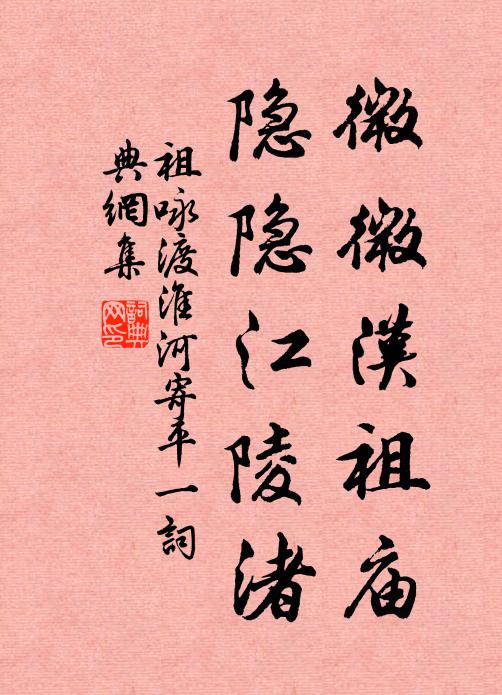 微微漢祖庙
隐隐江陵渚
祖咏渡淮河寄平一詞
典網集
詞典网印